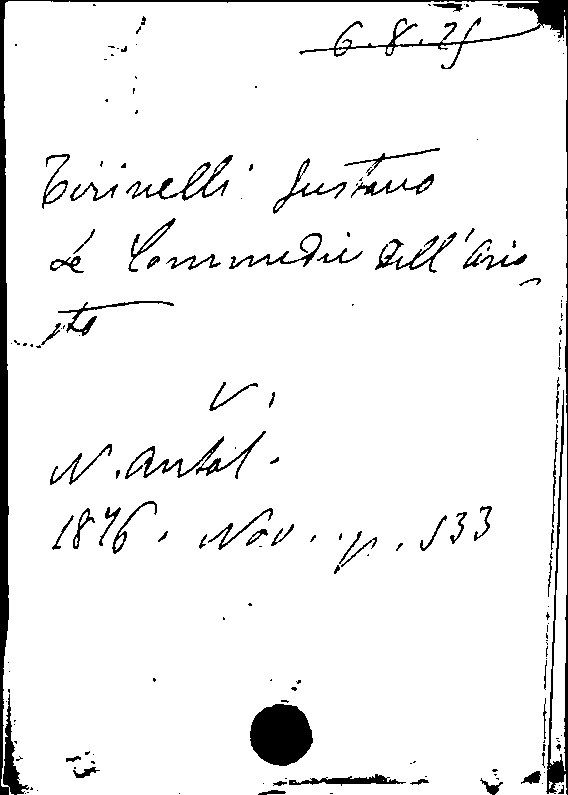 6.8.25
Tirinelli Gustavo
Le Commedie dell'Ario
sto
V.
N. Antol.
1876. Nov. p. 533